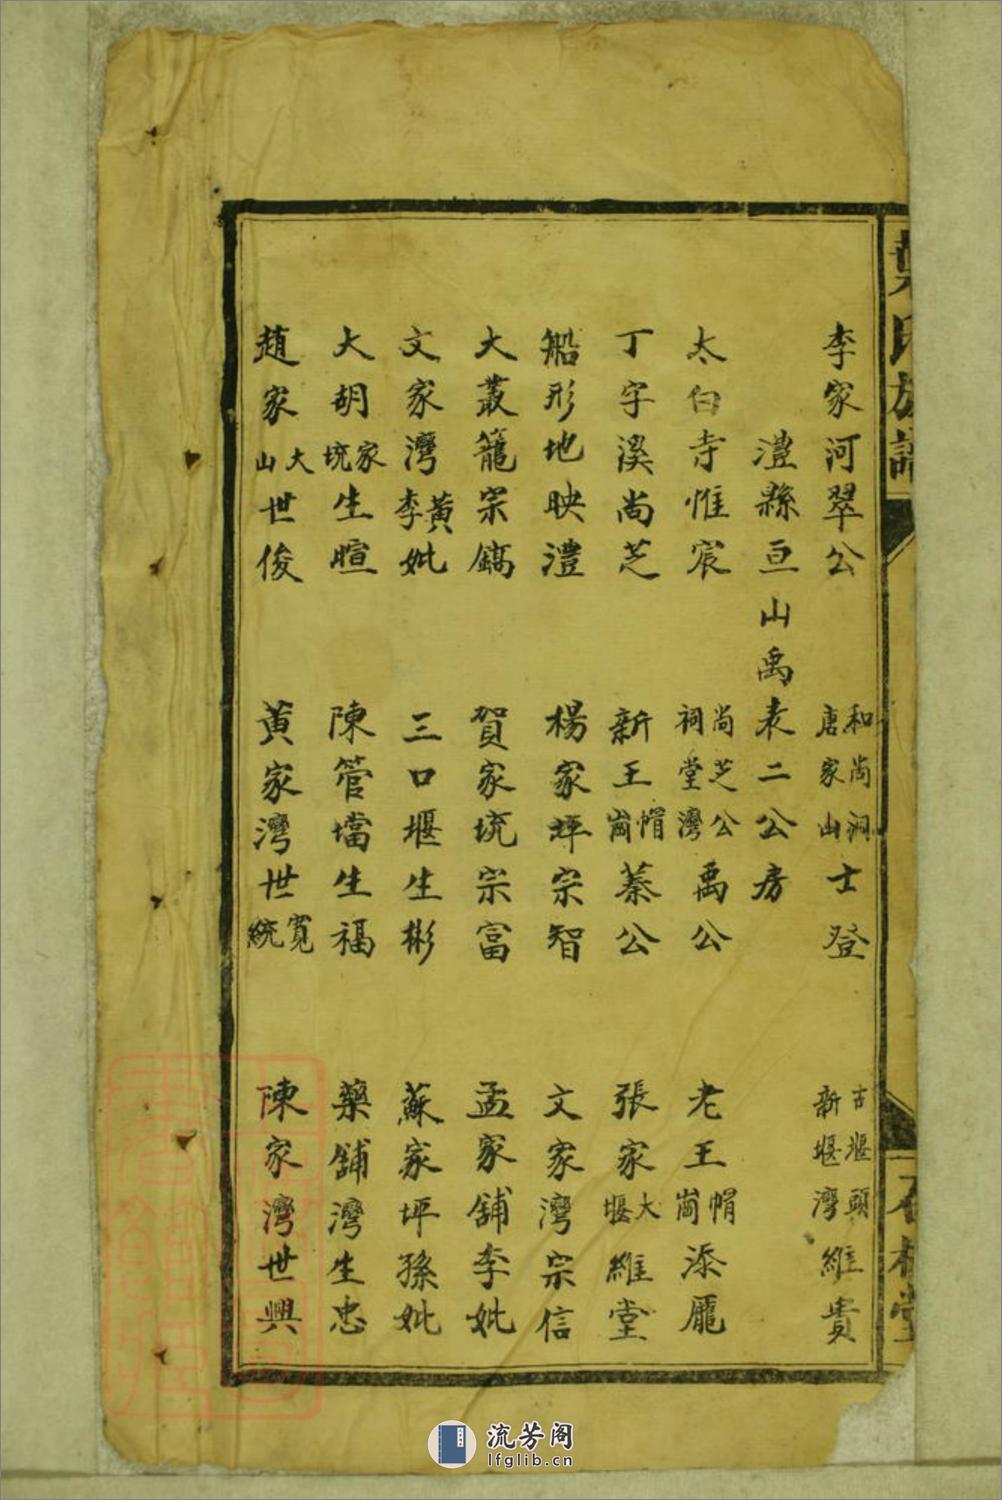 葉氏族譜
李家河翠公 和尚洞唐家山士登 古堰頭新堰灣維貴
澧縣亘山禹表二公房
太白寺惟宸 尚芝公祠堂灣禹公 老王帽崗添龎
丁字溪尚芝 新王帽崗蓁公 張家大堰維堂
船形地映澧 楊家坪宗智 文家灣宗信
大叢籠宗鎬 賀家垸宗富 孟家舖李妣
文家灣黃李妣 三口堰生彬 蘇家坪孫妣
大胡家垸生暄 陳管壋生福 藥舖灣生忠
趙家大山世俊 黃家灣世寬統 陳家灣世興
流芳阁
lfglib.cn